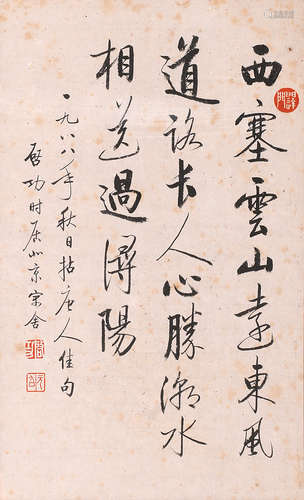 西塞雲山遠東風
道路長人心勝潮水
相送過潯陽
一九八八年秋日拈唐人佳句
啓功时居北京寓舍